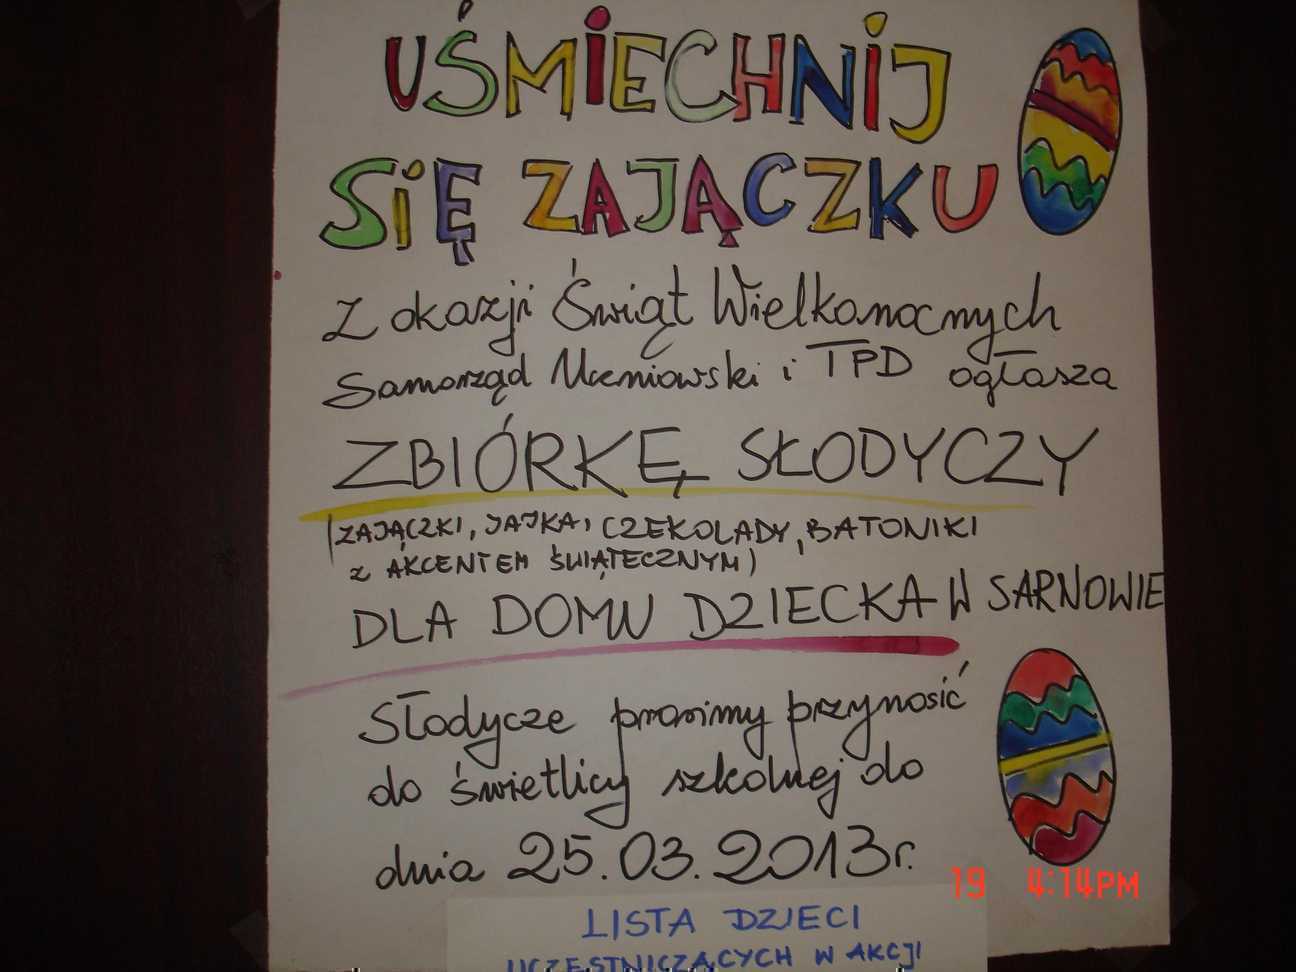 UŚMIECHNIJ
SIĘ ZAJĄCZKU
Z okazji Świąt Wielkanocnych
Samorząd Uczniowski i TPD ogłasza
ZBIÓRKĘ SŁODYCZY
(ZAJĄCZKI, JAJKA, CZEKOLADY, BATONIKI
z AKCENTEM ŚWIĄTECZNYM)
DLA DOMU DZIECKA W SARNOWIE
Słodycze prosimy przynosić
do świetlicy szkolnej do
dnia 25.03.2013r.
19 4:14PM
LISTA DZIECI
UCZESTNICZĄCYCH W AKCJI